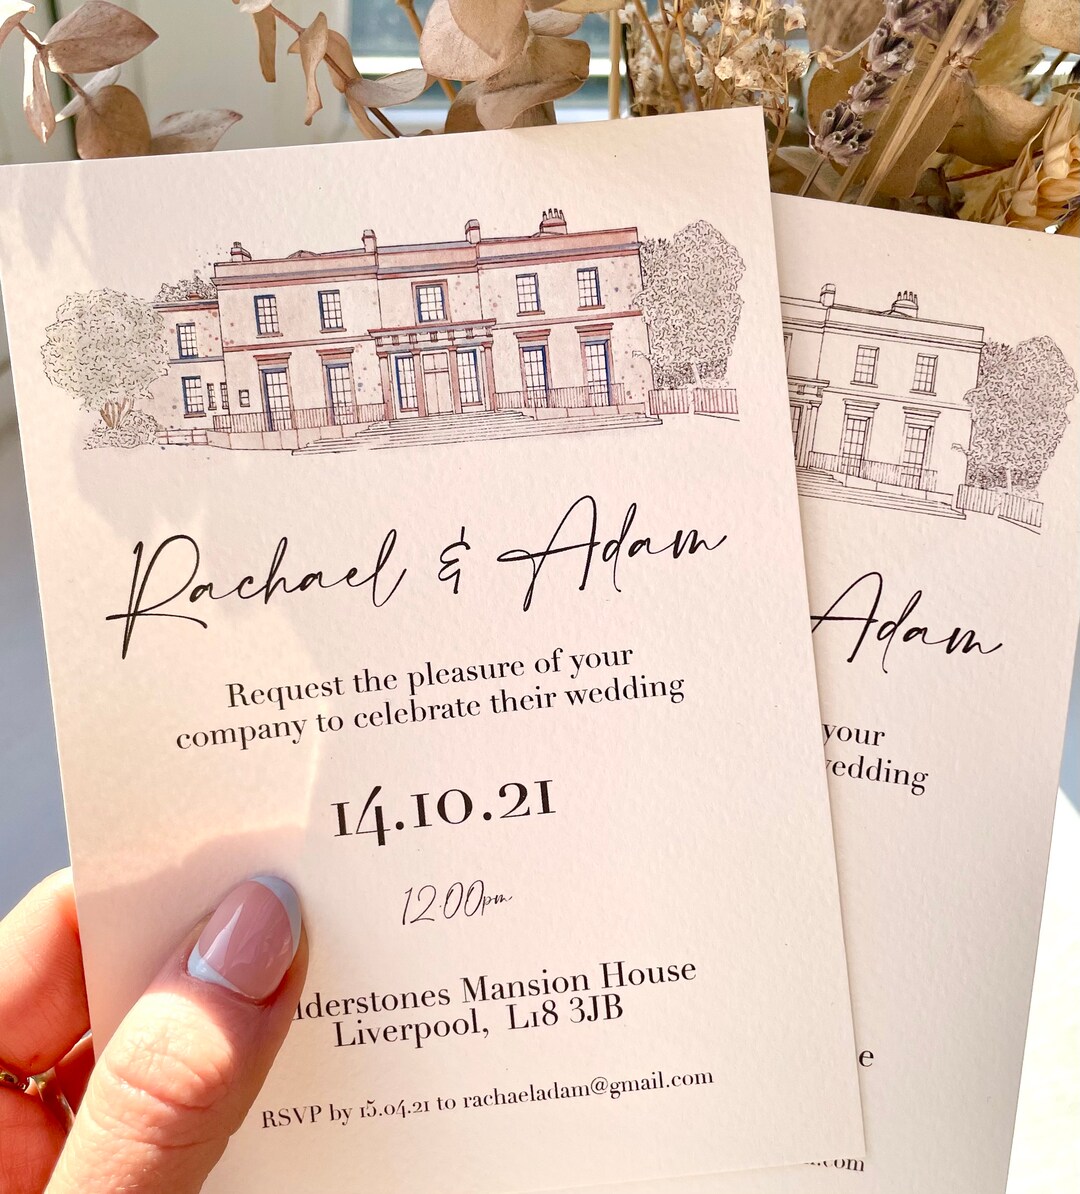 Rachael & Adam
Request the pleasure of your
company to celebrate their wedding
14.10.21
12:00pm
lderstones Mansion House
Liverpool, L18 3JB
RSVP by 15.04.21 to rachaeladam@gmail.com
Adam
your
edding
e
.com